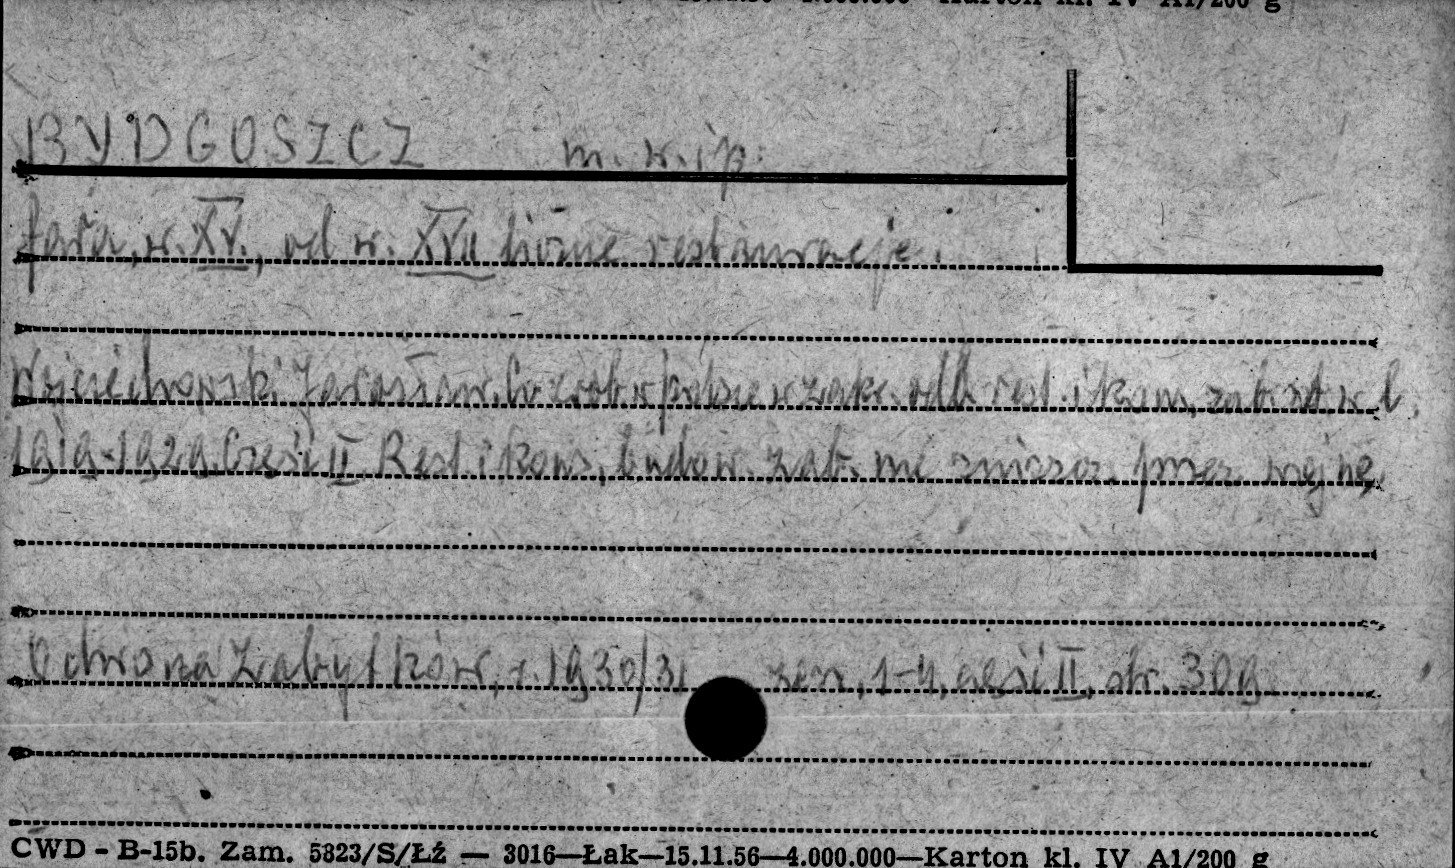 Karton kl. IV A1/200 g
BYDGOSZCZ m. w. i p.
fara, w. XV., od w. XVII liczne restauracje.
Wojciechowski Jarosław. Co zrob. w polsce w zakr. odb. rest. i kons. zab. szt. w l.
1919-1929 Część II Rest. i kons. budow. zab. nie zniszcz. przez wojnę
Ochrona Zabytków, r. 1930/31 zesz. 1-4, część II, str. 309.
CWD - B-15b. Zam. 5823/S/Łź — 3016—Łak—15.11.56—4.000.000—Karton kl. IV A1/200 g